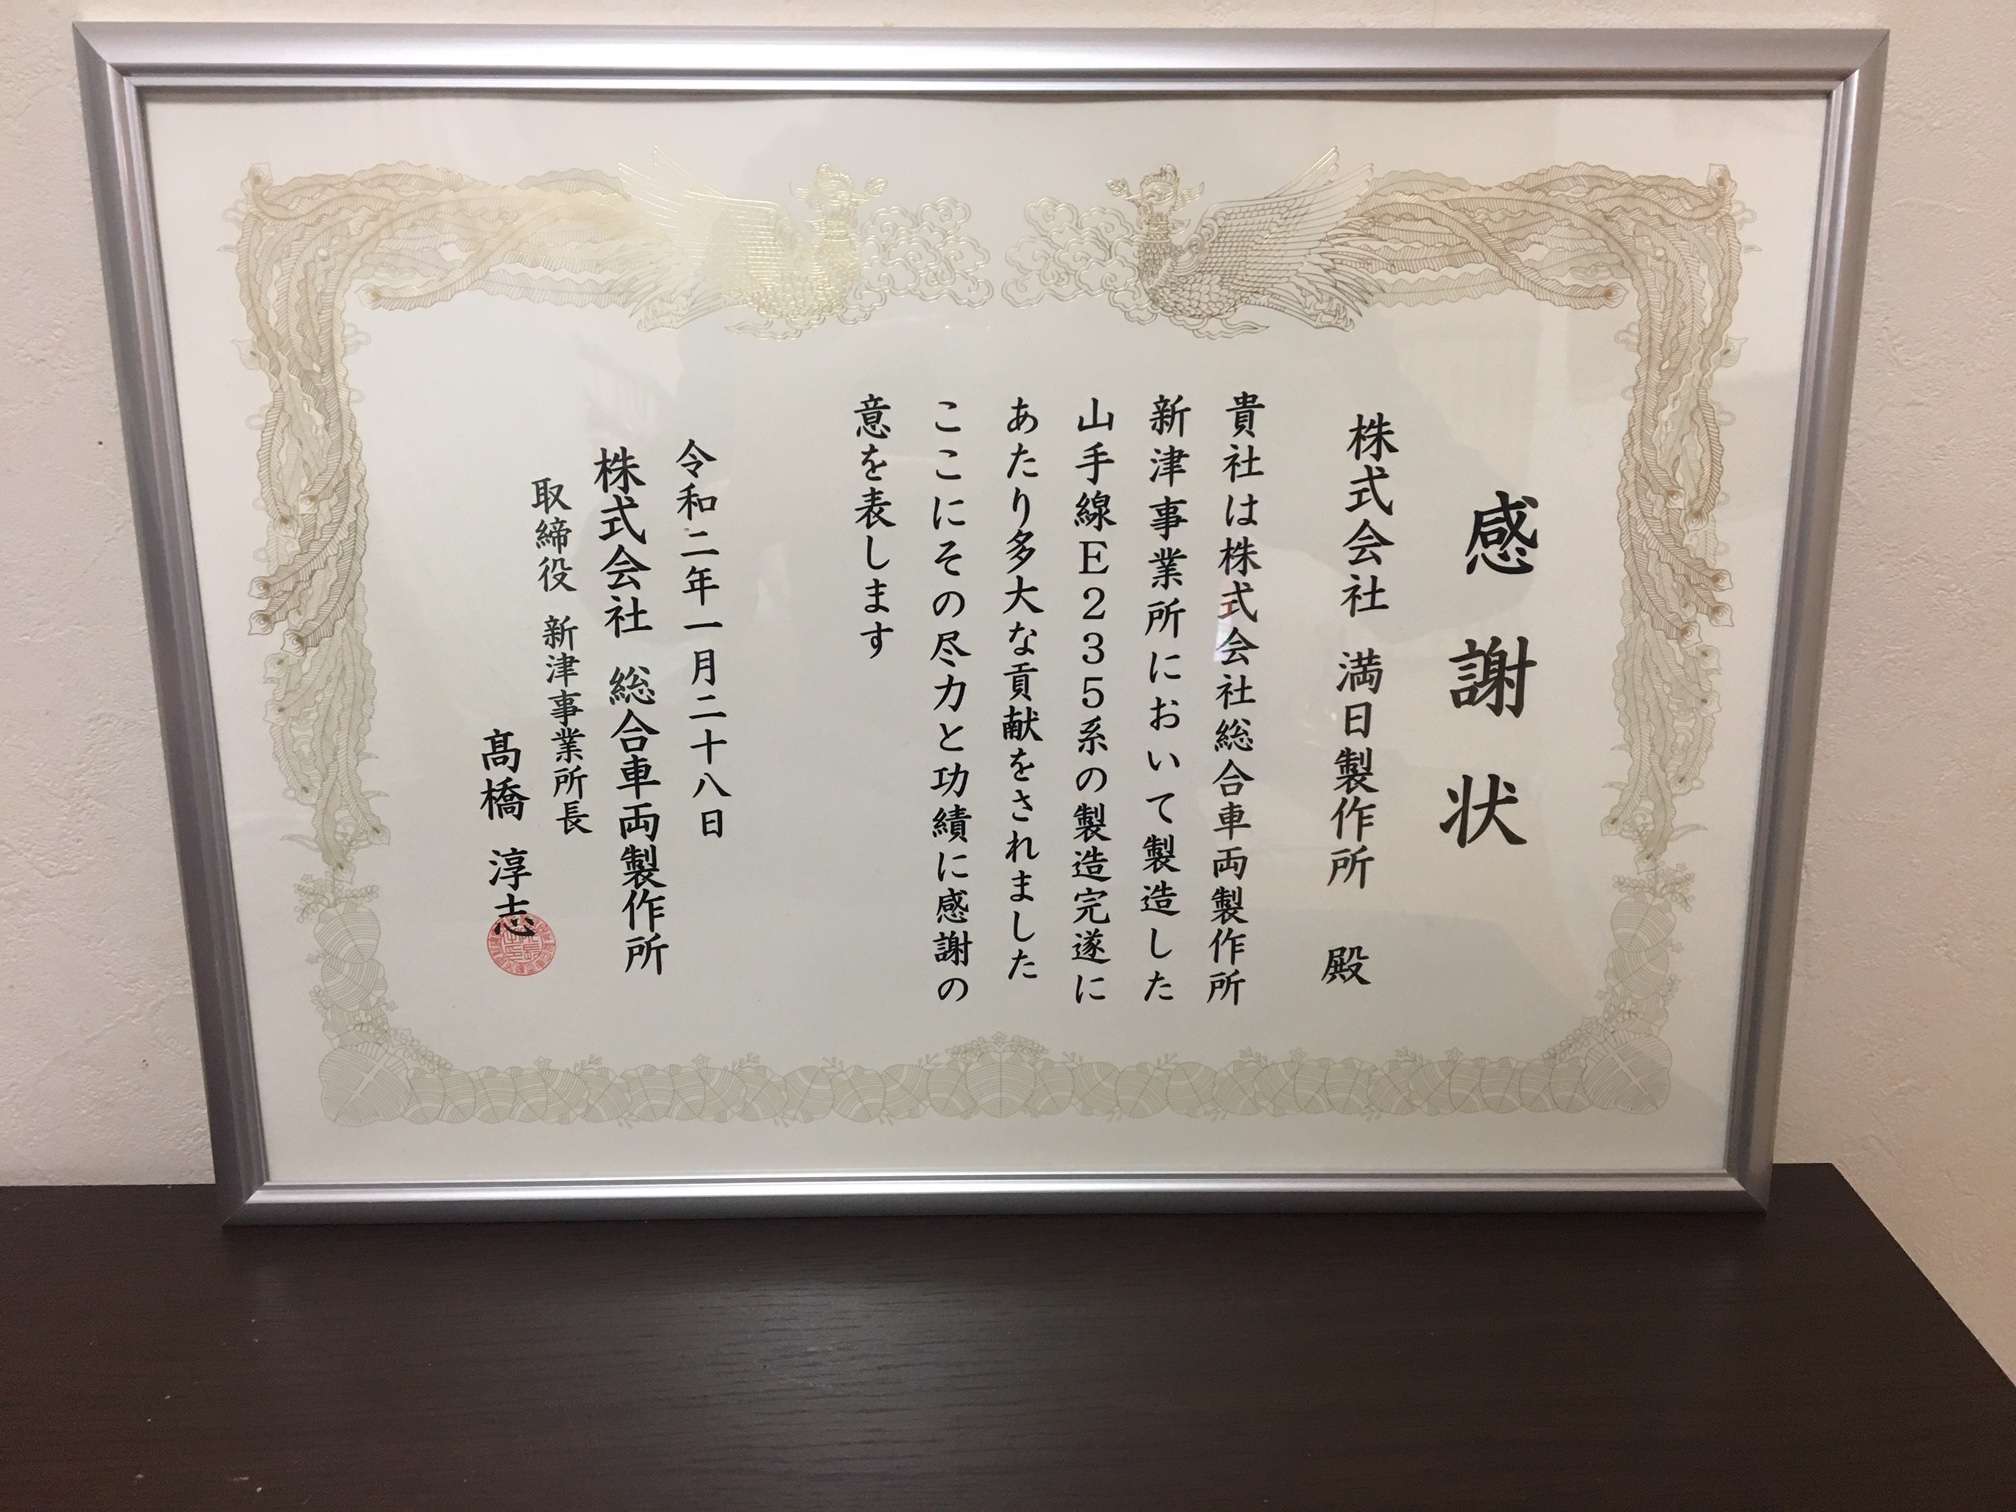 感謝状
株式会社 満日製作所 殿
貴社は株式会社総合車両製作所
新津事業所において製造した
山手線E235系の製造完遂に
あたり多大な貢献をされました
ここにその尽力と功績に感謝の
意を表します
令和二年一月二十八日
株式会社 総合車両製作所
取締役 新津事業所長
髙橋 淳志